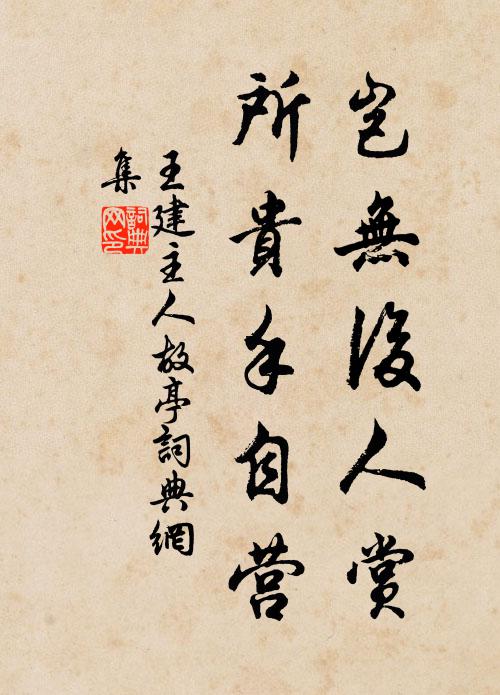 豈無後人賞
所貴手自营
王建主人故亭詞典網
集
詞典網印